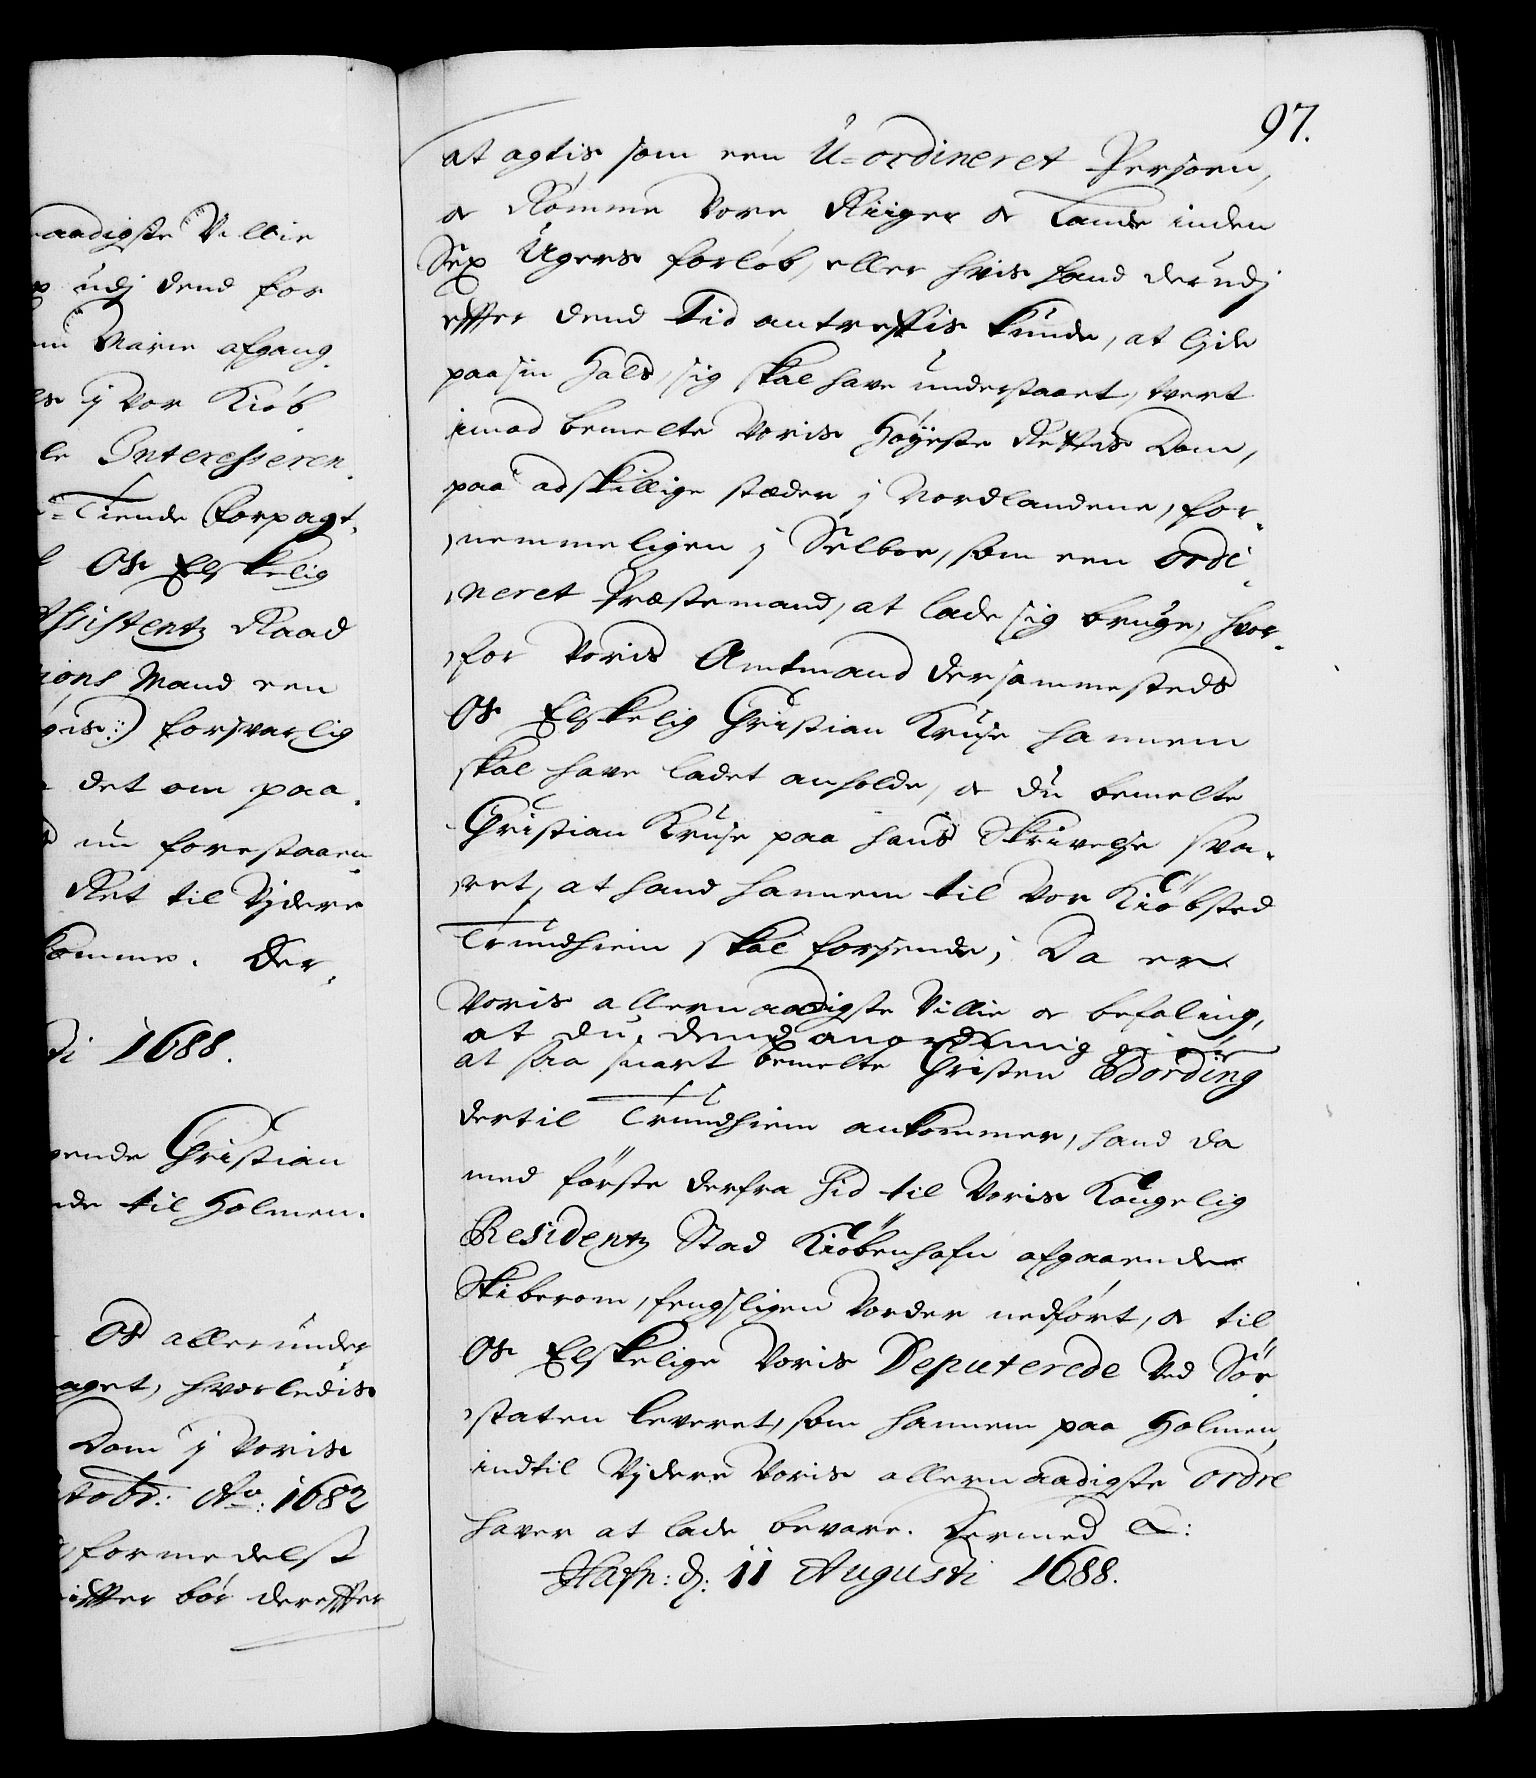 aadigste Villie
udj dend for
Marie afgang
j Vor Kiöb
le Interesseren
Tiende Forpagt
Os Elskelig
Assistentz Raad
ions Mand een
gis:) forsvarlig
det om paa
nu forestaaen
Ret til Vjdere
komme. Der
ti 1688.
gende Christian
nde til Holmen.
Os allerunder
aget, hvorledis
Dom j Voris
tobr: Ao: 1682
formedelst
effter bör dereffter
97.
at agtis som een U=ordineret Persoen,
oc Römme Vore Riiger oc Lande inden
Sex Ugers forlöb, eller hvis hand derudj
effter dend Tid antreffis kunde, at lide
paa sin Hals, sig skal have understaaet, tvert
imod bemelte Voris Höyeste Rettis Dom,
paa adskillige stæder j Nordlandene, for-
nemmeligen j Selboe, som een ordi-
neret Præstemand, at lade sig bruge, hvor-
for Voris Amtmand dersammesteds
Os Elskelig Christian Kruse hannem
skal have ladet anholde, oc du bemelte
Christian Kruse paa hans Skrivelse sva-
ret, at hand hannem til Vor Kiöbsted
Trundhiem skal forsende; Da er
Voris allernaadigste Villie oc befaling,
at du dend anordning giör
at saa snart bemelte Christen Bording
dertil Trundhiem ankommer, hand da
med förste derfra hid til Voris Kongelig
Residentz Stad Kiöbenhafn afgaaende
Skiberom, fengsligen Vorder nedfört, oc til
Os Elskelige Voris Deputerede Ved Söe
staten leveret, som hannem paa Holmen,
indtil Vjdere Voris allernaadigste ordre
haver at lade bevare. Dermed &:
Hafn: d: 11 Augusti 1688.